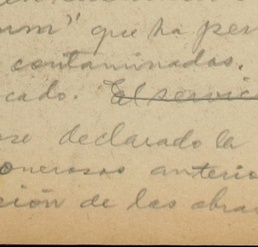 que ha per
contaminadas.
cado. El servic
se declarado la
onerosos anterio
sión de las obras